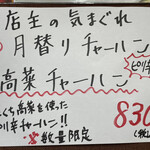 店主の気まぐれ
月替りチャーハン
高菜チャーハン
ピリ辛
くち高菜を使った
リ辛チャーハン!!
※数量限定
830
(税